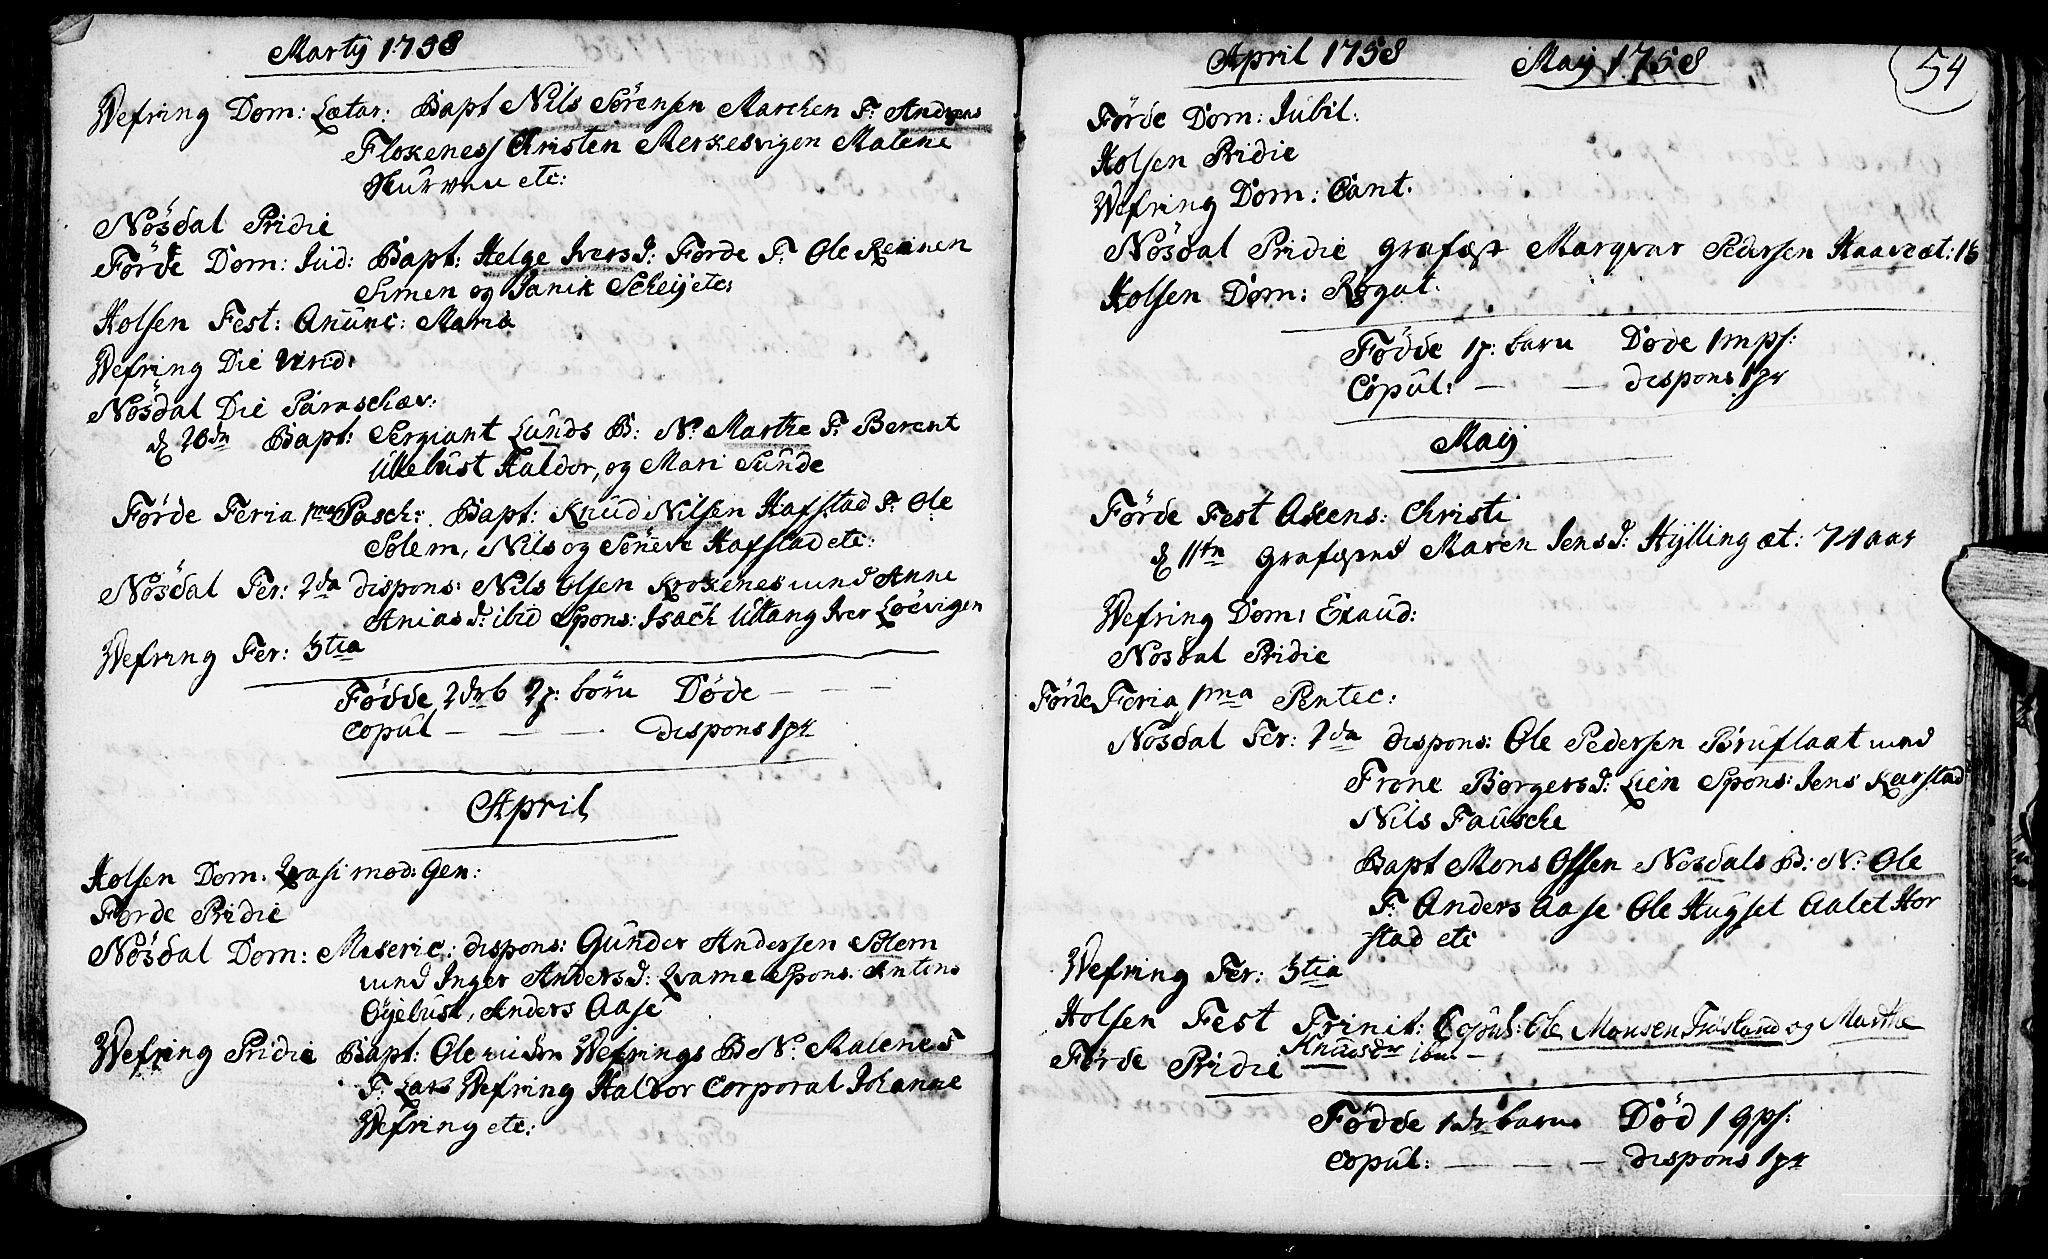 Martij 1758
Wefring Dom: Lætar: Bapt Nils Sörensen Marchen F. Andreas
Flokenes Christen Merkesvigen Malene
etc:
Nösdal Pridie
Förde Dom: Jud: Bapt: Helge Ivers D: Förde F. Ole Reinen
Simen og Janik Scheij etc:
Holsen Fest: Anunc: Maria
Wefring Die Virid:
Nösdal Die Parascæv:
d 26dn Bapt: Sergiant Lunds B: N. Marthe F. Berent
Ullebust Haldor, og Mari Sunde
Förde Feria 1ma Pasch: Bapt: Knud Nilsen Hafstad F. Ole
Solem, Nils og Sönneve Hafstad etc:
Nösdal Fer: 2da dispons: Nils Olsen Krokenes und Anne
Anias D: ibid Spons: Isach Uttang Iver Löevigen
Wefring Fer: 3tia
Födde 2drb 2p: börn Döde - - -
Copul - - - dispons 1pr
April
Holsen Dom: Qvasi mod: Gen:
Förde Pridie
Nösdal Dom: Miseric: dispons: Gunder Andersen Solem
und Inger Anders D: Qvame Spons: Antens
Öijebust, Anders Aase
Wefring Pridie Bapt: Ole Wefrings B N. Malene
F. Lars Wefring Haldor Corporal Johanne
Wefring etc:
April 1758 Maij 1758 54
Förde Dom: Jubil:
Holsen Pridie
Wefring Dom: Cant.
Nösdal Pridie grafæst Marqvar Pedersen Haave æt: 18
Holsen Dom: Rogat.
Födde 1p: barn Döde 1mps:
Copul: - - dispons 1pr
Maij
Förde Fest Ascens: Christi
d 11tn grafæsned Maren Jens D: Hylling æt: 74 aar
Wefring Dom: Exaud:
Nösdal Pridie
Förde Feria 1ma Pentec:
Nösdal Fer: 2da dispons: Ole Pedersen Bruflaat und
Frone Börgers D: Lien Spons: Jens Karstad
Nils Fausche
Bapt Mons Olsen Nösdals B: N. Ole
F. Anders Aase Ole Hugset Aalet Hor
stad etc
Wefring Fer: 3tia
Holsen Fest Trinit: Copul: Ole Monsen Fröslund og Marthe
Knudsdr ibm -
Förde Pridie
Födde 1dr barn Död 1 qps:
Copul: - - - dispons 1pr